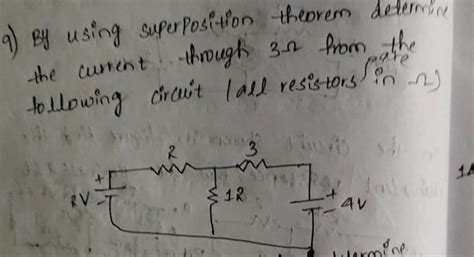 9) By using superposition theorem determine
the current through 3Ω from the
following circuit (all resistors are in Ω)
2 3
+ 12 + 4V
- -
determine